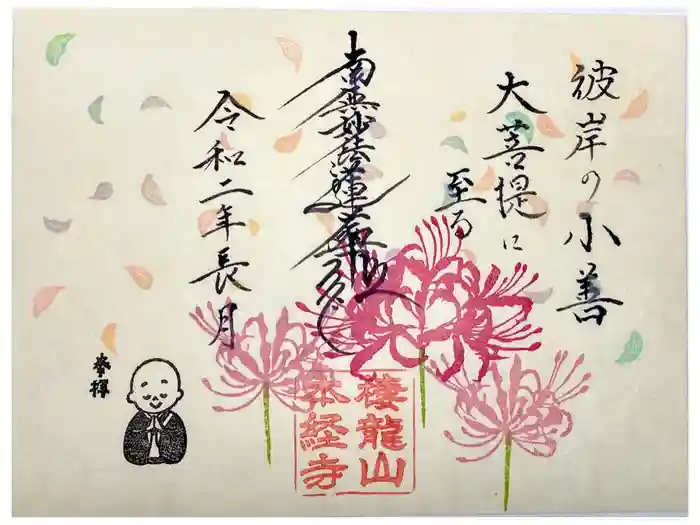 彼岸の小善
大菩提に
至る
南無妙法蓮華経
令和二年長月
奉拝
棲龍山
本経寺